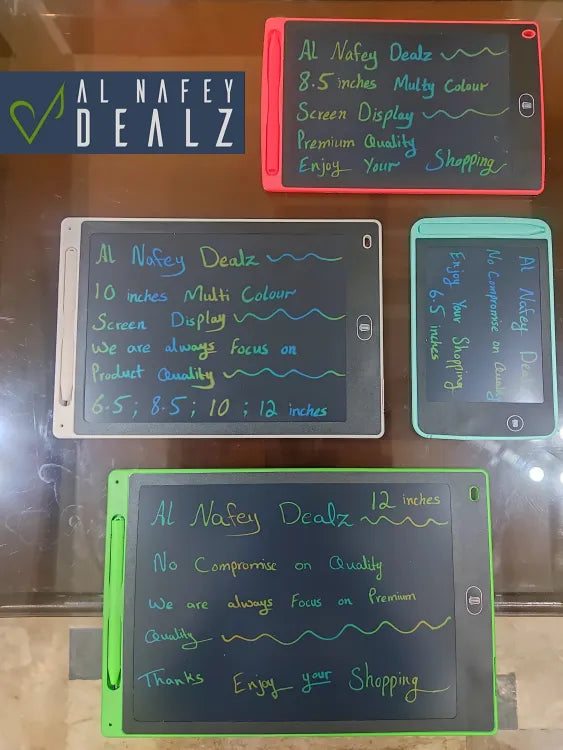 AL NAFEY
DEALZ
Al Nafey Dealz
8.5 inches Multy Colour
Screen Display
Premium Quality
Enjoy Your Shopping
Al Nafey Dealz
10 inches Multi Colour
Screen Display
We are always Focus on
Product Quality
6.5 ; 8.5 ; 10 ; 12 inches
Al Nafey Dealz
No Compromise on Quality
Enjoy Your Shopping
6.5 inches
Al Nafey Dealz 12 inches
No Compromise on Quality
We are always Focus on Premium
Quality
Thanks Enjoy your Shopping